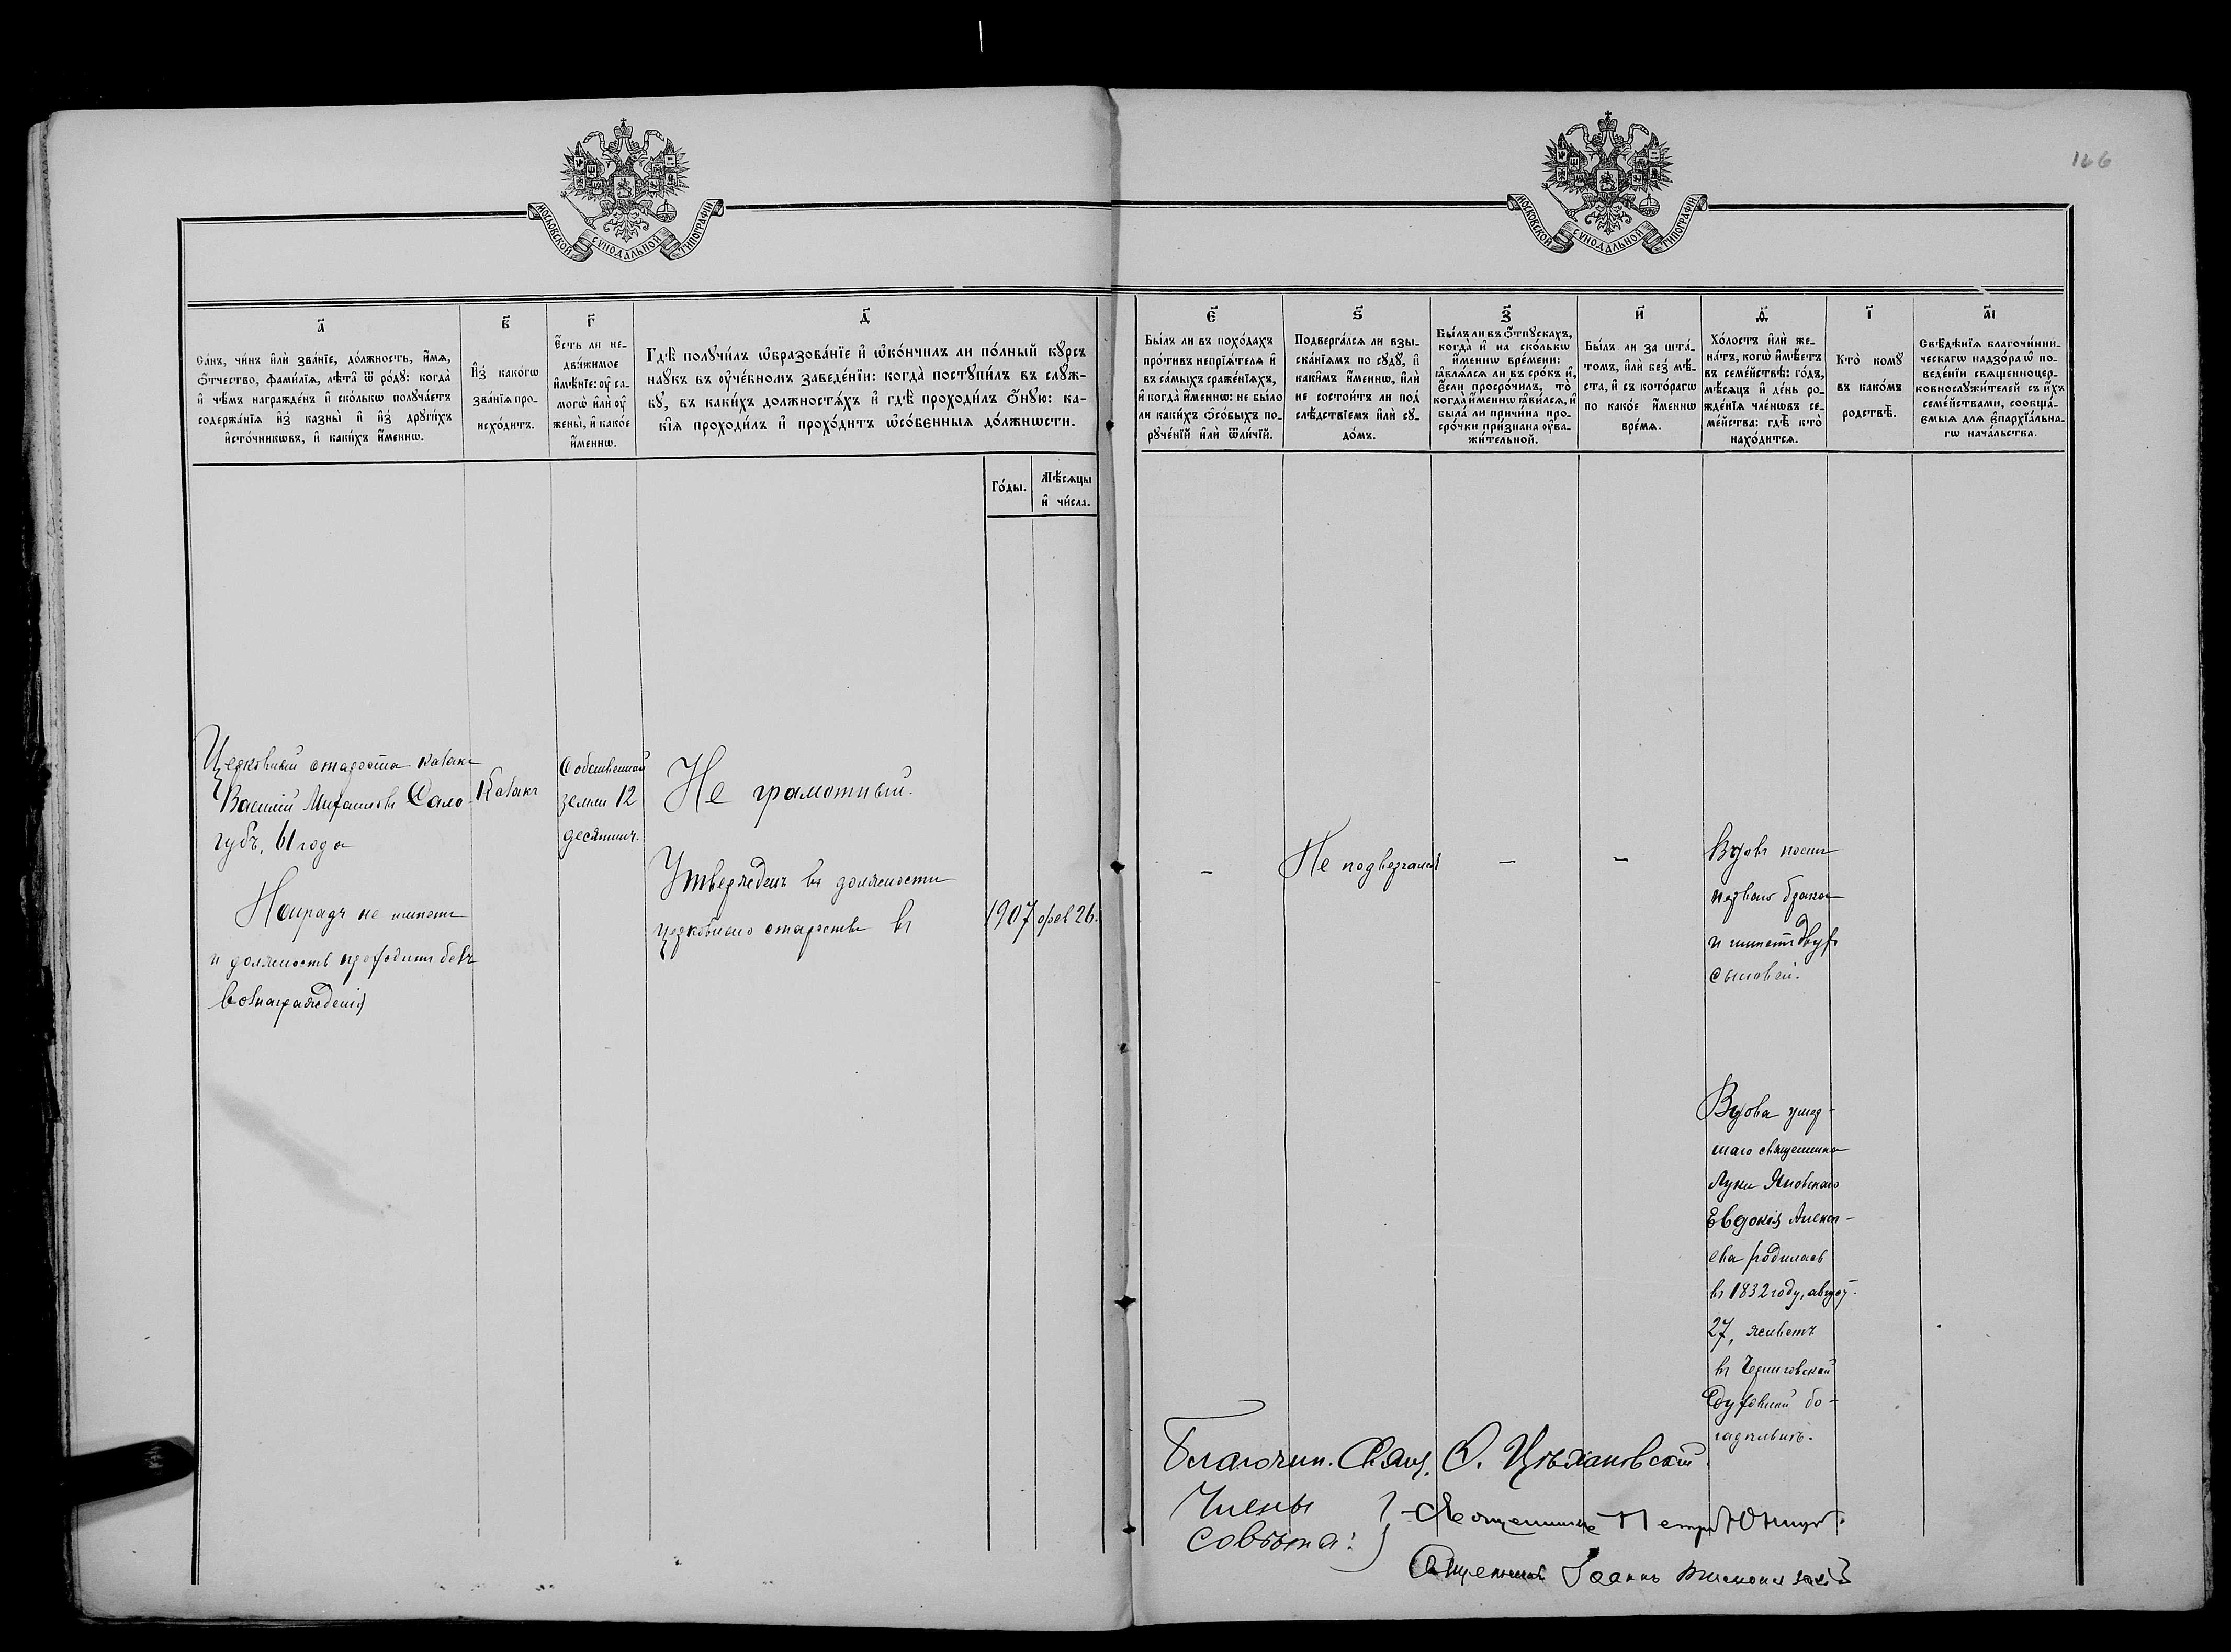 166
МОСКОВСКОЙ СѴНОДАЛЬНОЙ ТИПОГРАФІИ
МОСКОВСКОЙ СѴНОДАЛЬНОЙ ТИПОГРАФІИ
а҃
Са́нъ, чи́нъ и҆лѝ зва́нїе, до́лжность, и҆́мѧ,
ѻ҆́тчество, фами́лїѧ, лѣ́та ѿ ро́дꙋ: когда̀
и҆ чѣ́мъ награжде́нъ и҆ ско́лькѡ получа́етъ
содержа́нїѧ и҆з̾ казны̀ и҆ и҆з̾ дрꙋги́хъ
и҆сто́чникѡвъ, и҆ каки́хъ и҆́меннѡ.
в҃
И҆з̾ како́гѡ
зва́нїѧ про-
исхо́дитъ.
г҃
Є҆́сть ли не-
дви́жимое
и҆мѣ́нїе: ᲂу҆ са-
могѡ̀ и҆лѝ ᲂу҆
жены̀, и҆ како́е
и҆́меннѡ.
д҃
Гдѣ̀ получи́лъ ѡ҆бразова́нїе и҆ ѡ҆ко́нчилъ ли по́лный кꙋ́рсъ
наꙋ́къ въ ᲂу҆че́бномъ заведе́нїи: когда̀ постꙋпи́лъ въ слꙋ́ж-
бꙋ, въ каки́хъ должностѧ́хъ и҆ гдѣ̀ проходи́лъ ѻ҆́нꙋю: ка-
кі́ѧ проходи́лъ и҆ прохо́дитъ ѡ҆со́бенныѧ до́лжнѡсти.
Го́ды.
Мѣ́сѧцы
и҆ чи́сла.
є҃
Бы́лъ ли въ похо́дахъ
про́тивъ непрїѧ́телѧ и҆
въ са́мыхъ сраже́нїѧхъ,
и҆ когда̀ и҆́меннѡ: не бы́ло
ли каки́хъ ѻ҆со́быхъ по-
рꙋче́нїй и҆лѝ ѿли́чїй.
ѕ҃
Подверга́лсѧ ли взы-
ска́нїѧмъ по сꙋдꙋ̀, и҆
каки́мъ и҆́меннѡ, и҆лѝ
не состои́тъ ли под̾
слѣ́дствїемъ и҆лѝ сꙋ-
до́мъ.
з҃
Бы́лъ ли въ ѻ҆́тпꙋскахъ,
когда̀ и҆ на ско́лькѡ
и҆́меннѡ вре́мени:
ꙗ҆влѧ́лсѧ ли въ сро́къ и҆,
є҆́сли просро́чилъ, то̀
когда̀ и҆́меннѡ ꙗ҆ви́лсѧ, и҆
была̀ ли причи́на про-
сро́чки при́знана ᲂу҆ва-
жи́тельной.
и҃
Бы́лъ ли за шта́-
томъ, и҆лѝ без̾ мѣ́-
ста, и҆ съ кото́рагѡ
по како́е и҆́меннѡ
вре́мѧ.
ѳ҃
Хо́лостъ и҆лѝ же-
на́тъ, когѡ̀ и҆мѣ́етъ
въ семе́йствѣ: го́дъ,
мѣ́сѧцъ и҆ де́нь ро-
жде́нїѧ чле́нѡвъ се-
ме́йства: гдѣ̀ кто̀
нахо́дитсѧ.
і҃
Кто̀ комꙋ̀
въ како́мъ
родствѣ̀.
а҃і
Свѣ́дѣнїѧ благочи́нни-
ческагѡ надзо́ра ѡ҆ по-
веде́нїи свѧщенноцер-
ковнослꙋжи́телей съ и҆́хъ
семе́йствами, сообща́-
ємыѧ длѧ є҆парх́їа́льна-
гѡ нача́льства.
Церковный староста козакъ
Василій Михаиловъ Сало-
губъ, 61 года
Наградъ не имѣетъ
и должность проходитъ безъ
вознагражденія
Козакъ
Собственной
земли 12
десятинъ.
Не грамотный.
Утвержденъ въ должности
церковнаго старосты въ
1907 фев 26.
–
Не подвергался
–
–
Вдовъ послѣ
перваго брака
и имѣетъ двухъ
сыновей.
Вдова умер-
шаго священника
Луки Яновскаго
Евдокія Алексѣ-
ева родилась
въ 1832 году, август.
27, живетъ
въ Черниговской
Духовной бо-
гадѣльнѣ.
Благочин. Свящ. С. Цѣхановскій.
Члены
совѣта:
Священникъ Петръ
Священникъ Іоаннъ